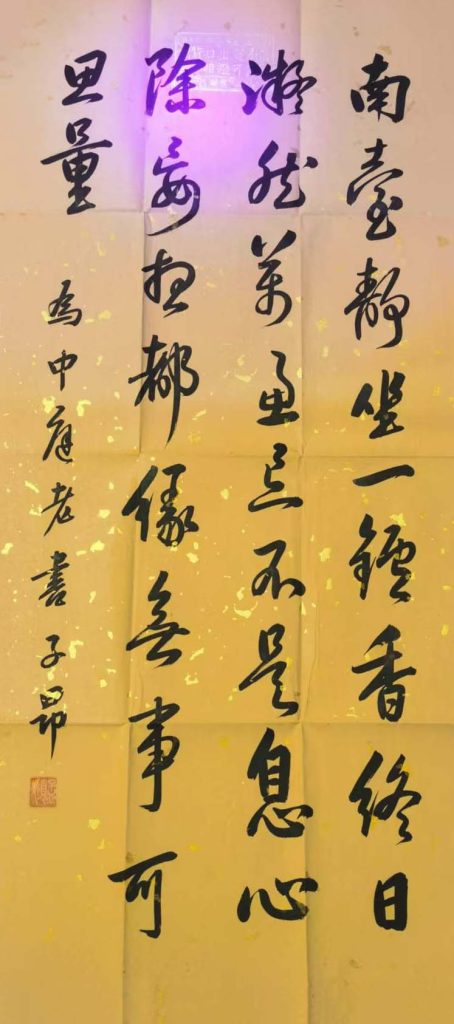 南臺靜坐一鑪香終日
凝然萬虑忘不是息心
除妄想都緣無事可
思量
為中庭老書子昂